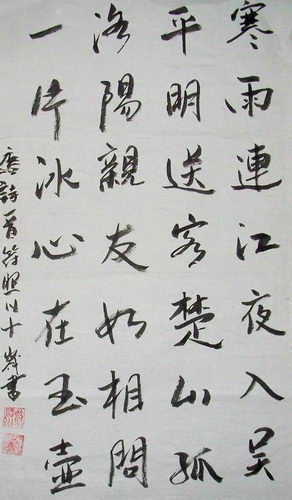 寒雨連江夜入吴
平明送客楚山孤
洛陽親友如相問
一片冰心在玉壺
唐詩首符照十歲書